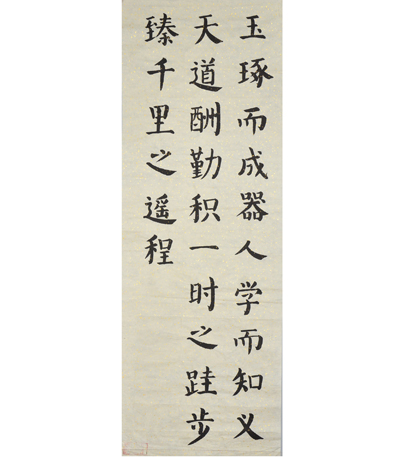 玉琢而成器人学而知义
天道酬勤积一时之跬步
臻千里之遥程